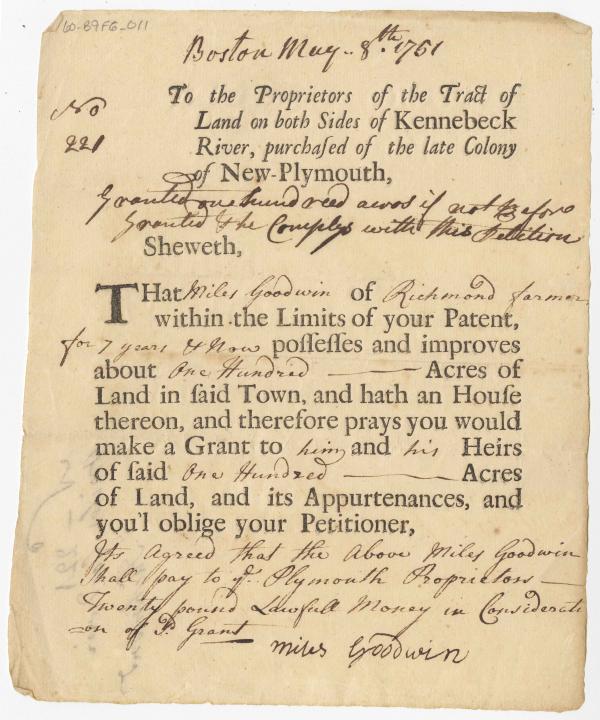 60-B9FG-011
Boston May 8th. 1751
No
221
To the Proprietors of the Tract of
Land on both Sides of Kennebeck
River, purchaſed of the late Colony
of New-Plymouth,
Granted one hundreed acers if not Before
Granted & he Complys with this Petition
Sheweth,
THat Miles Goodwin of Richmond farmer
within the Limits of your Patent,
for 7 years & Now poſſeſſes and improves
about One Hundred Acres of
Land in ſaid Town, and hath an Houſe
thereon, and therefore prays you would
make a Grant to him and his Heirs
of ſaid One Hundred Acres
of Land, and its Appurtenances, and
you'l oblige your Petitioner,
Its Agreed that the Above Miles Goodwin
Shall pay to ye. Plymouth Proprietors
Twenty pound Lawfull Money in Considerati
on of sd. Grant
miles Goodwin